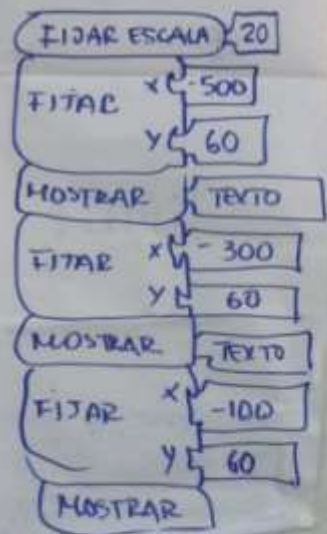 FIJAR ESCALA 20
FITAR X -500
Y 60
MOSTRAR TEXTO
FIJAR X -300
Y 60
MOSTRAR TEXTO
FIJAR X -100
Y 60
MOSTRAR